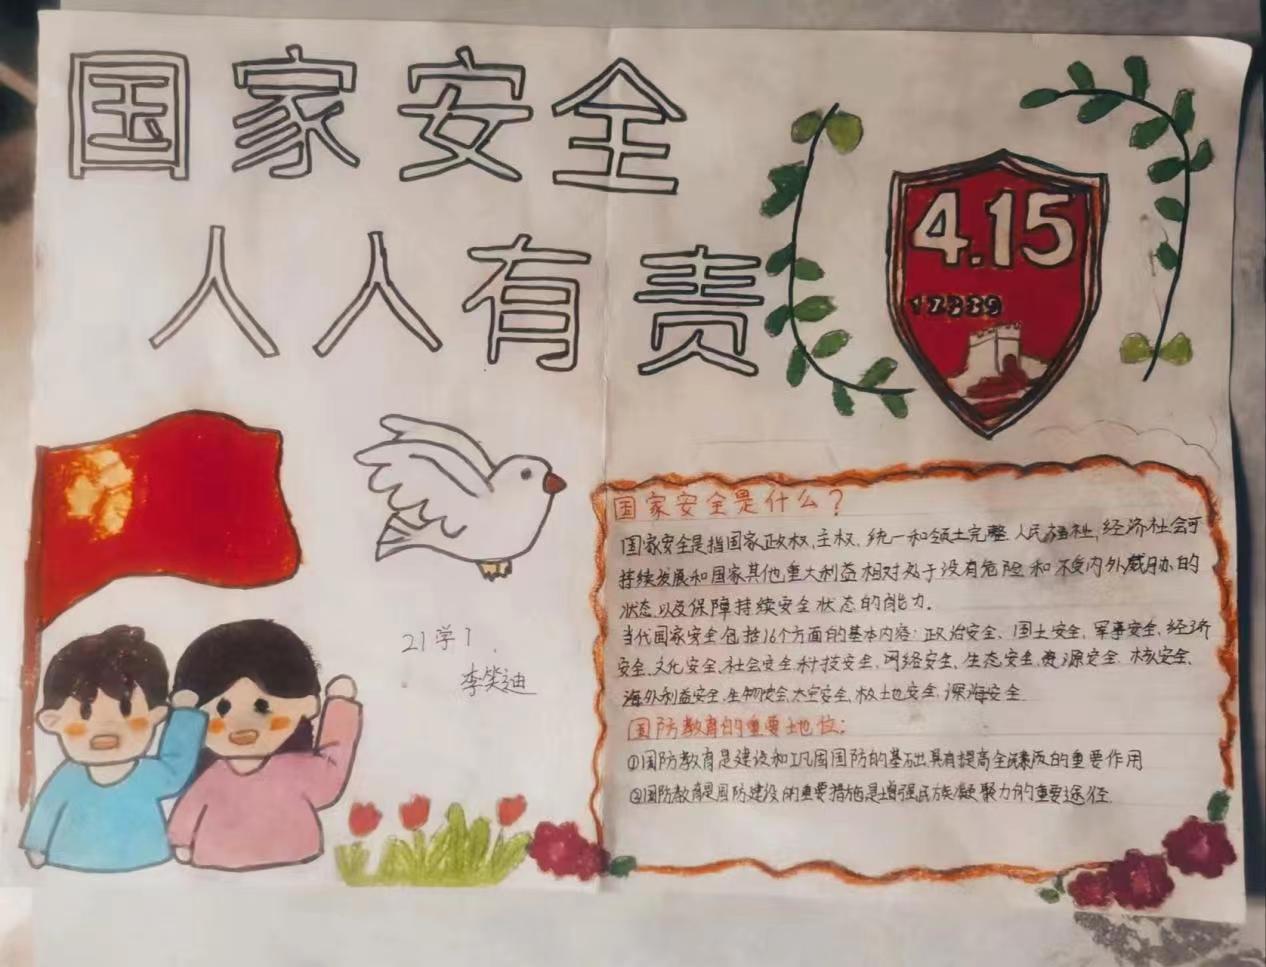 国家安全
人人有责
4.15
12339
国家安全是什么？
国家安全是指国家政权、主权、统一和领土完整、人民福祉、经济社会可
持续发展和国家其他重大利益相对处于没有危险和不受内外威胁的
状态,以及保障持续安全状态的能力。
当代国家安全包括16个方面的基本内容:政治安全、国土安全、军事安全、经济
安全、文化安全、社会安全、科技安全、网络安全、生态安全、资源安全、核安全、
海外利益安全、生物安全、太空安全、极地安全、深海安全.
国防教育的重要地位:
①国防教育是建设和巩固国防的基础具有提高全民素质的重要作用
②国防教育是国防建设的重要措施是增强民族凝聚力的重要途径.
21学1.
李笑迪